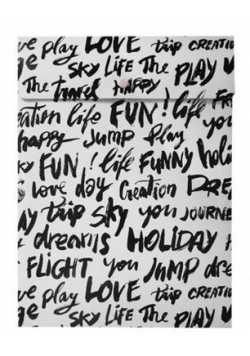 ve play LOVE trip CREATIO
SKY LIFE The PLAY
The travel HAPPY
eation life FUN! life FR
happy JUMP Play you
KY FUN! life FUNNY holi
love day Creation DRE
AY trip SKY you JOURNE
dreams HOLIDAY
FLIGHT you JUMP dre
ve play LOVE trip CREATIO
SKY LIFE The PLAY